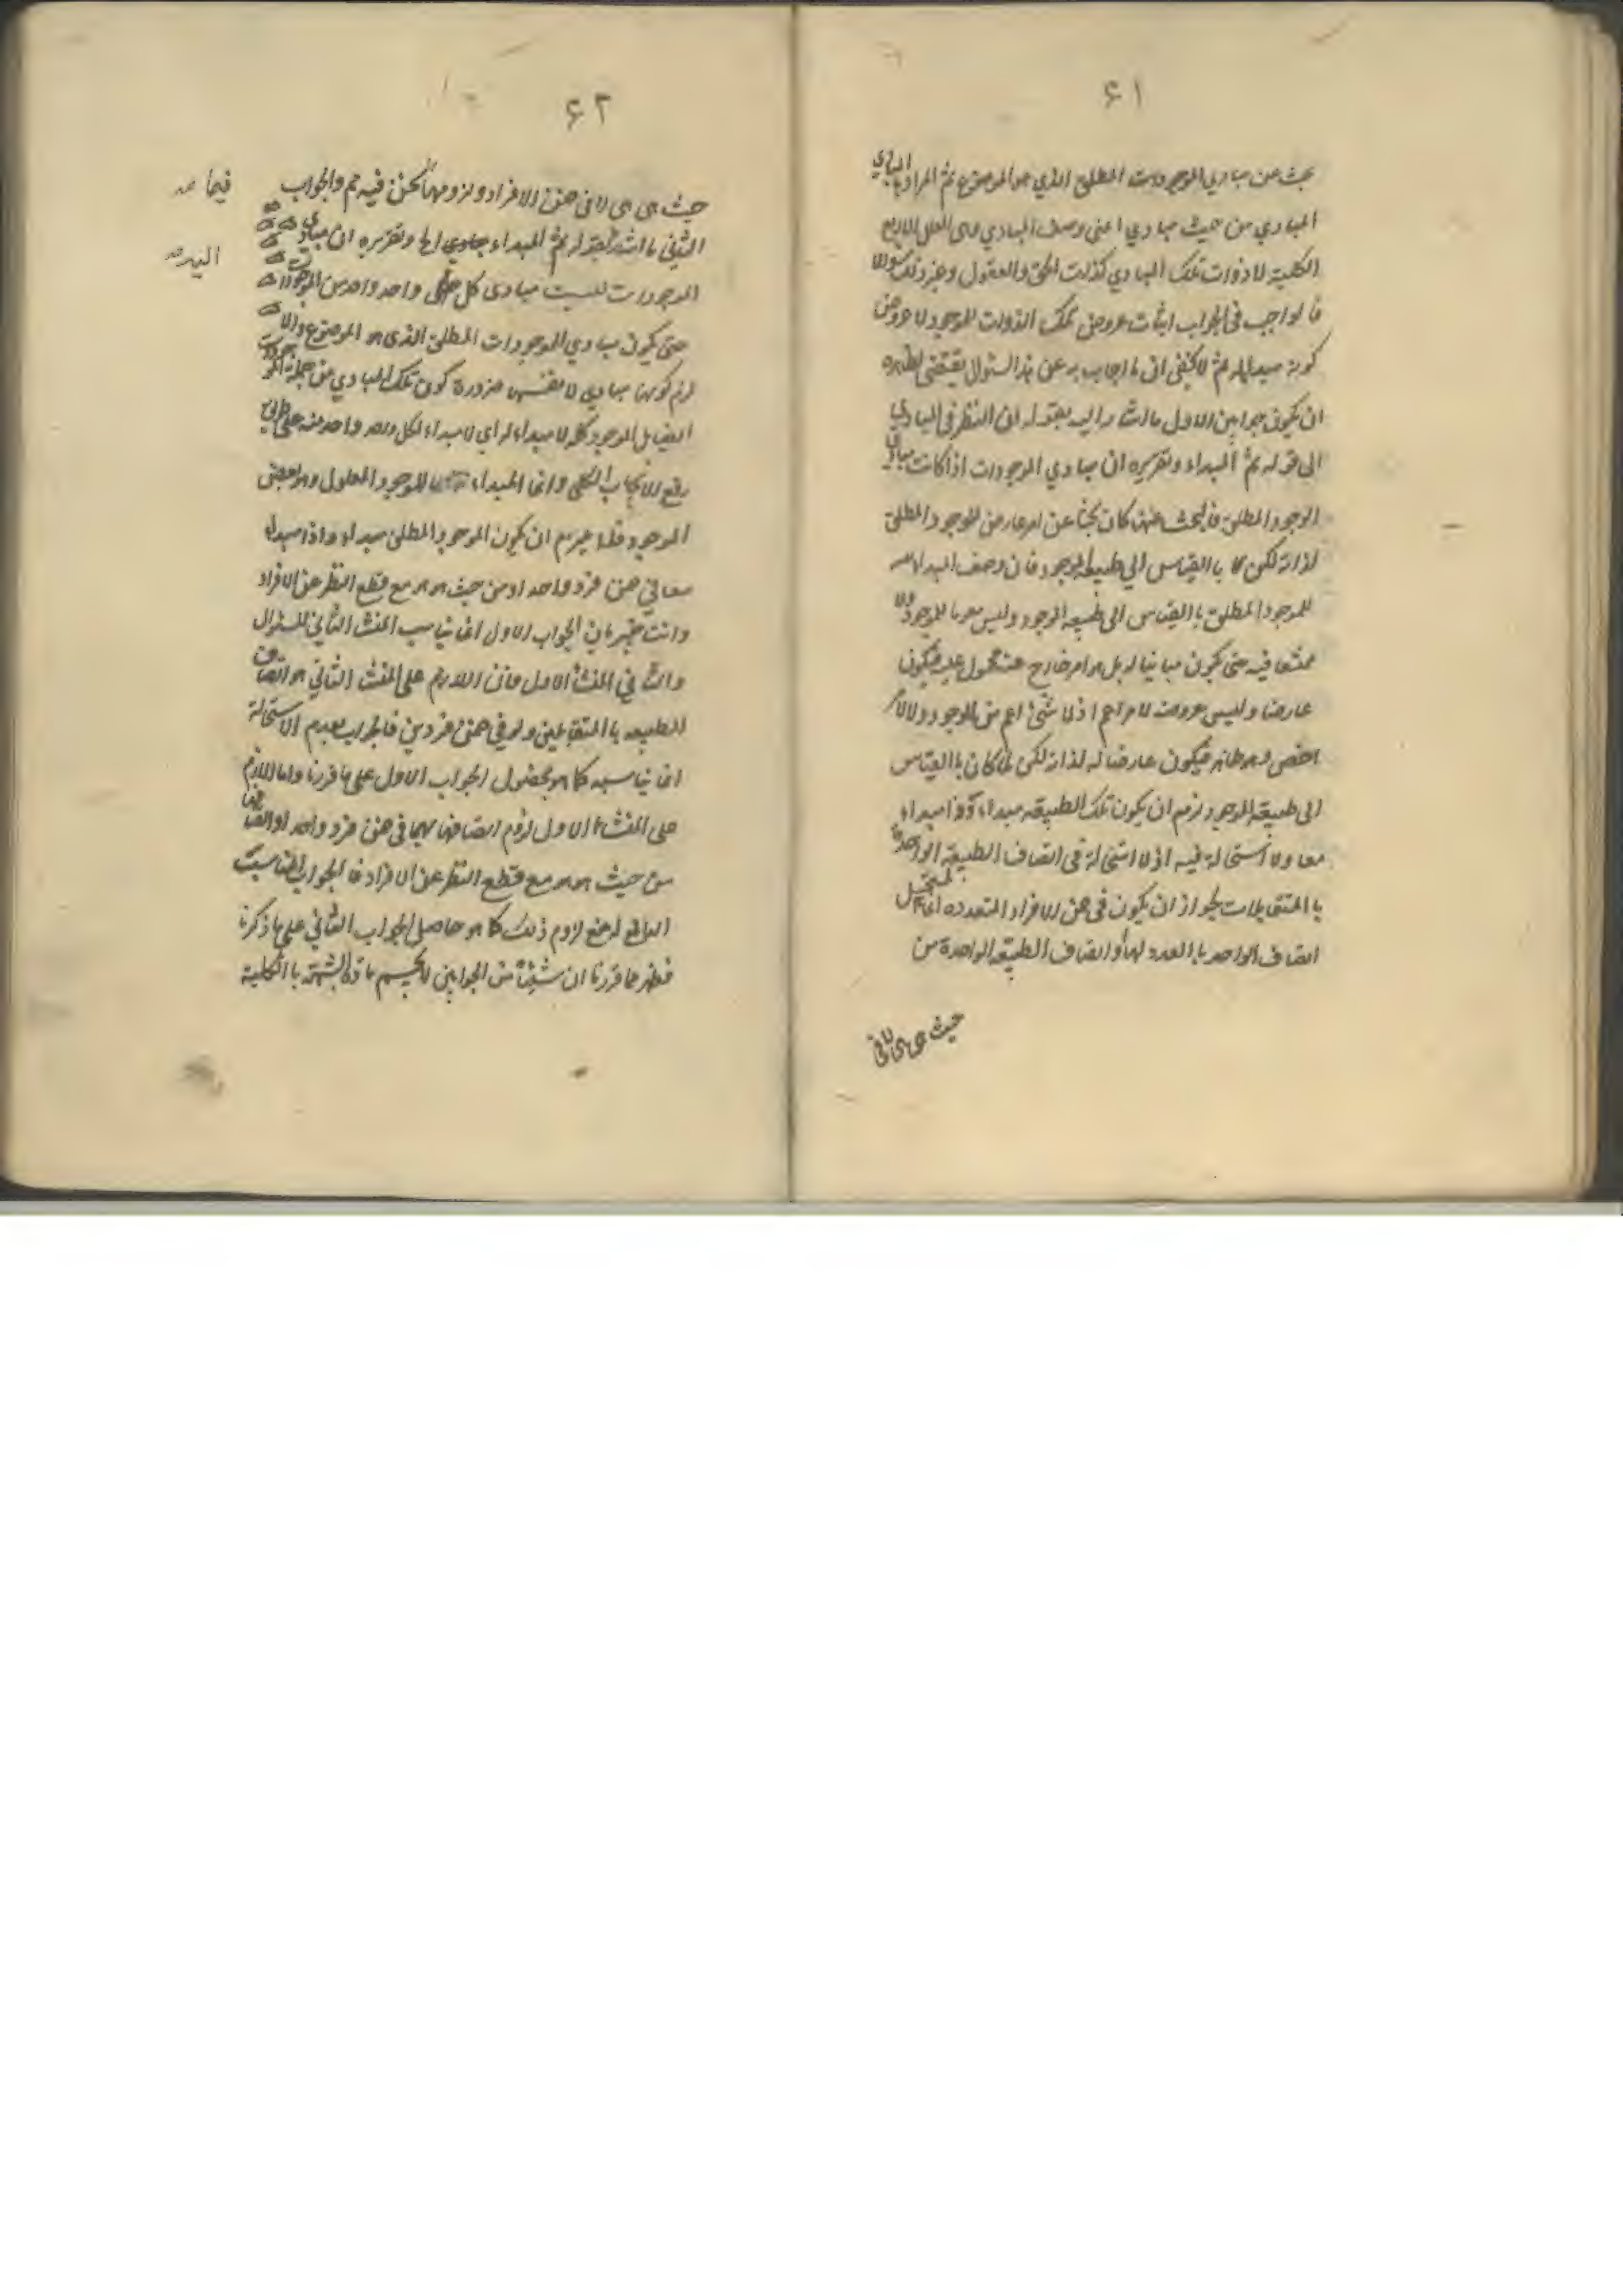 ۶۱
بحث عن مبادي الموجودات المطلق الذي هو الموضوع ثم المراد بالمبادي
المبادي من حيث مبادي اعنى وصف المبادي وهى العلل الاربع
الكلية لا ذوات تلك المبادي كذات الحق والعقول وغير ذلك والا
فالواجب فى الجواب اثبات عروض تلك الذوات للموجود لا عروض
كونه مبدأ له ثم لا يخفى ان ما اجاب به عن هذا السئوال يقتضى ظاهره
ان يكون جوابين الاول ما اشار اليه بقوله ان النظر فى المبادي
الى قوله ثم المبداء وتقريره ان مبادي الموجودات اذا كانت مبادي
الوجود المطلق فالبحث عنها كان بحثا عن امر عارض للموجود المطلق
لذاته لكن لا بالقياس الي طبيعة الموجود فان وصف المبداء
للموجود المطلق بالقياس الى طبيعة الموجود وليس مقوما للموجود ولا
ممتنعا فيه حتى يكون مباينا له بل هو امر خارج عنه محمول عليه فيكون
عارضا وليس عروضه لامر اعم اذ لا شئ اعم من الموجود ولا لامر
اخص وهو ظاهر فيكون عارضا له لذاته لكن لما كان بالقياس
الى طبيعة الموجود لزم ان يكون تلك الطبيعة مبداء وذا مبداء
معا ولا استحالة فيه اذ لا استحالة فى اتصاف الطبيعة الواحدة
بالمتقابلات لجواز ان يكون فى ضمن الافراد المتعدده انما المستحيل
اتصاف الواحد بالعدد بهما او اتصاف الطبيعة الواحدة من
حيث هى هى لا فى
۶۲
حيث هى هى لا فى ضمن الافراد ولزومهما فيما نحن فيه مم والجواب
الثانى ما اشار اليه بقوله ثم المبداء مبادي الخ وتقريره ان مبادي
الموجودات ليست مبادى كل واحد واحد من الموجودات
حتى يكون مبادي الموجودات المطلق الذى هو الموضوع والا
لزم كونها مبادي لانفسها ضرورة كون تلك المبادي من جملة الموجودات
ايضا بل الموجود كله لا مبداء له اي لا مبداء لكل واحد واحد منه على طريق
رفع الايجاب الكلى وانما المبداء للموجود المعلول وهو بعض
الموجود فلا يلزم ان يكون الموجود المطلق مبداء وذا مبداء
معا في ضمن فرد واحد او من حيث هو هو مع قطع النظر عن الافراد
وانت خبير بان الجواب الاول انما يناسب المنشاء الثاني للسئوال
والثانى المنشاء الاول فان اللازم على المنشاء الثاني هو اتصاف
الطبيعه بالمتقابلين ولو في ضمن فردين فالجواب بعدم الاستحالة
انما يناسبه كما هو محصول الجواب الاول على ما قررنا واما اللازم
على المنشاء الاول لزوم اتصافها بهما فى ضمن فرد واحد او اتصافها
من حيث هو هو مع قطع النظر عن الافراد فالجواب المناسب
الدافع له منع لزوم ذلك كما هو حاصل الجواب الثاني على ما ذكرنا
فظهر مما قررنا ان شيئا من الجوابين لا يحسم مادة الشبهة بالكلية
فيما صح
اليه صح